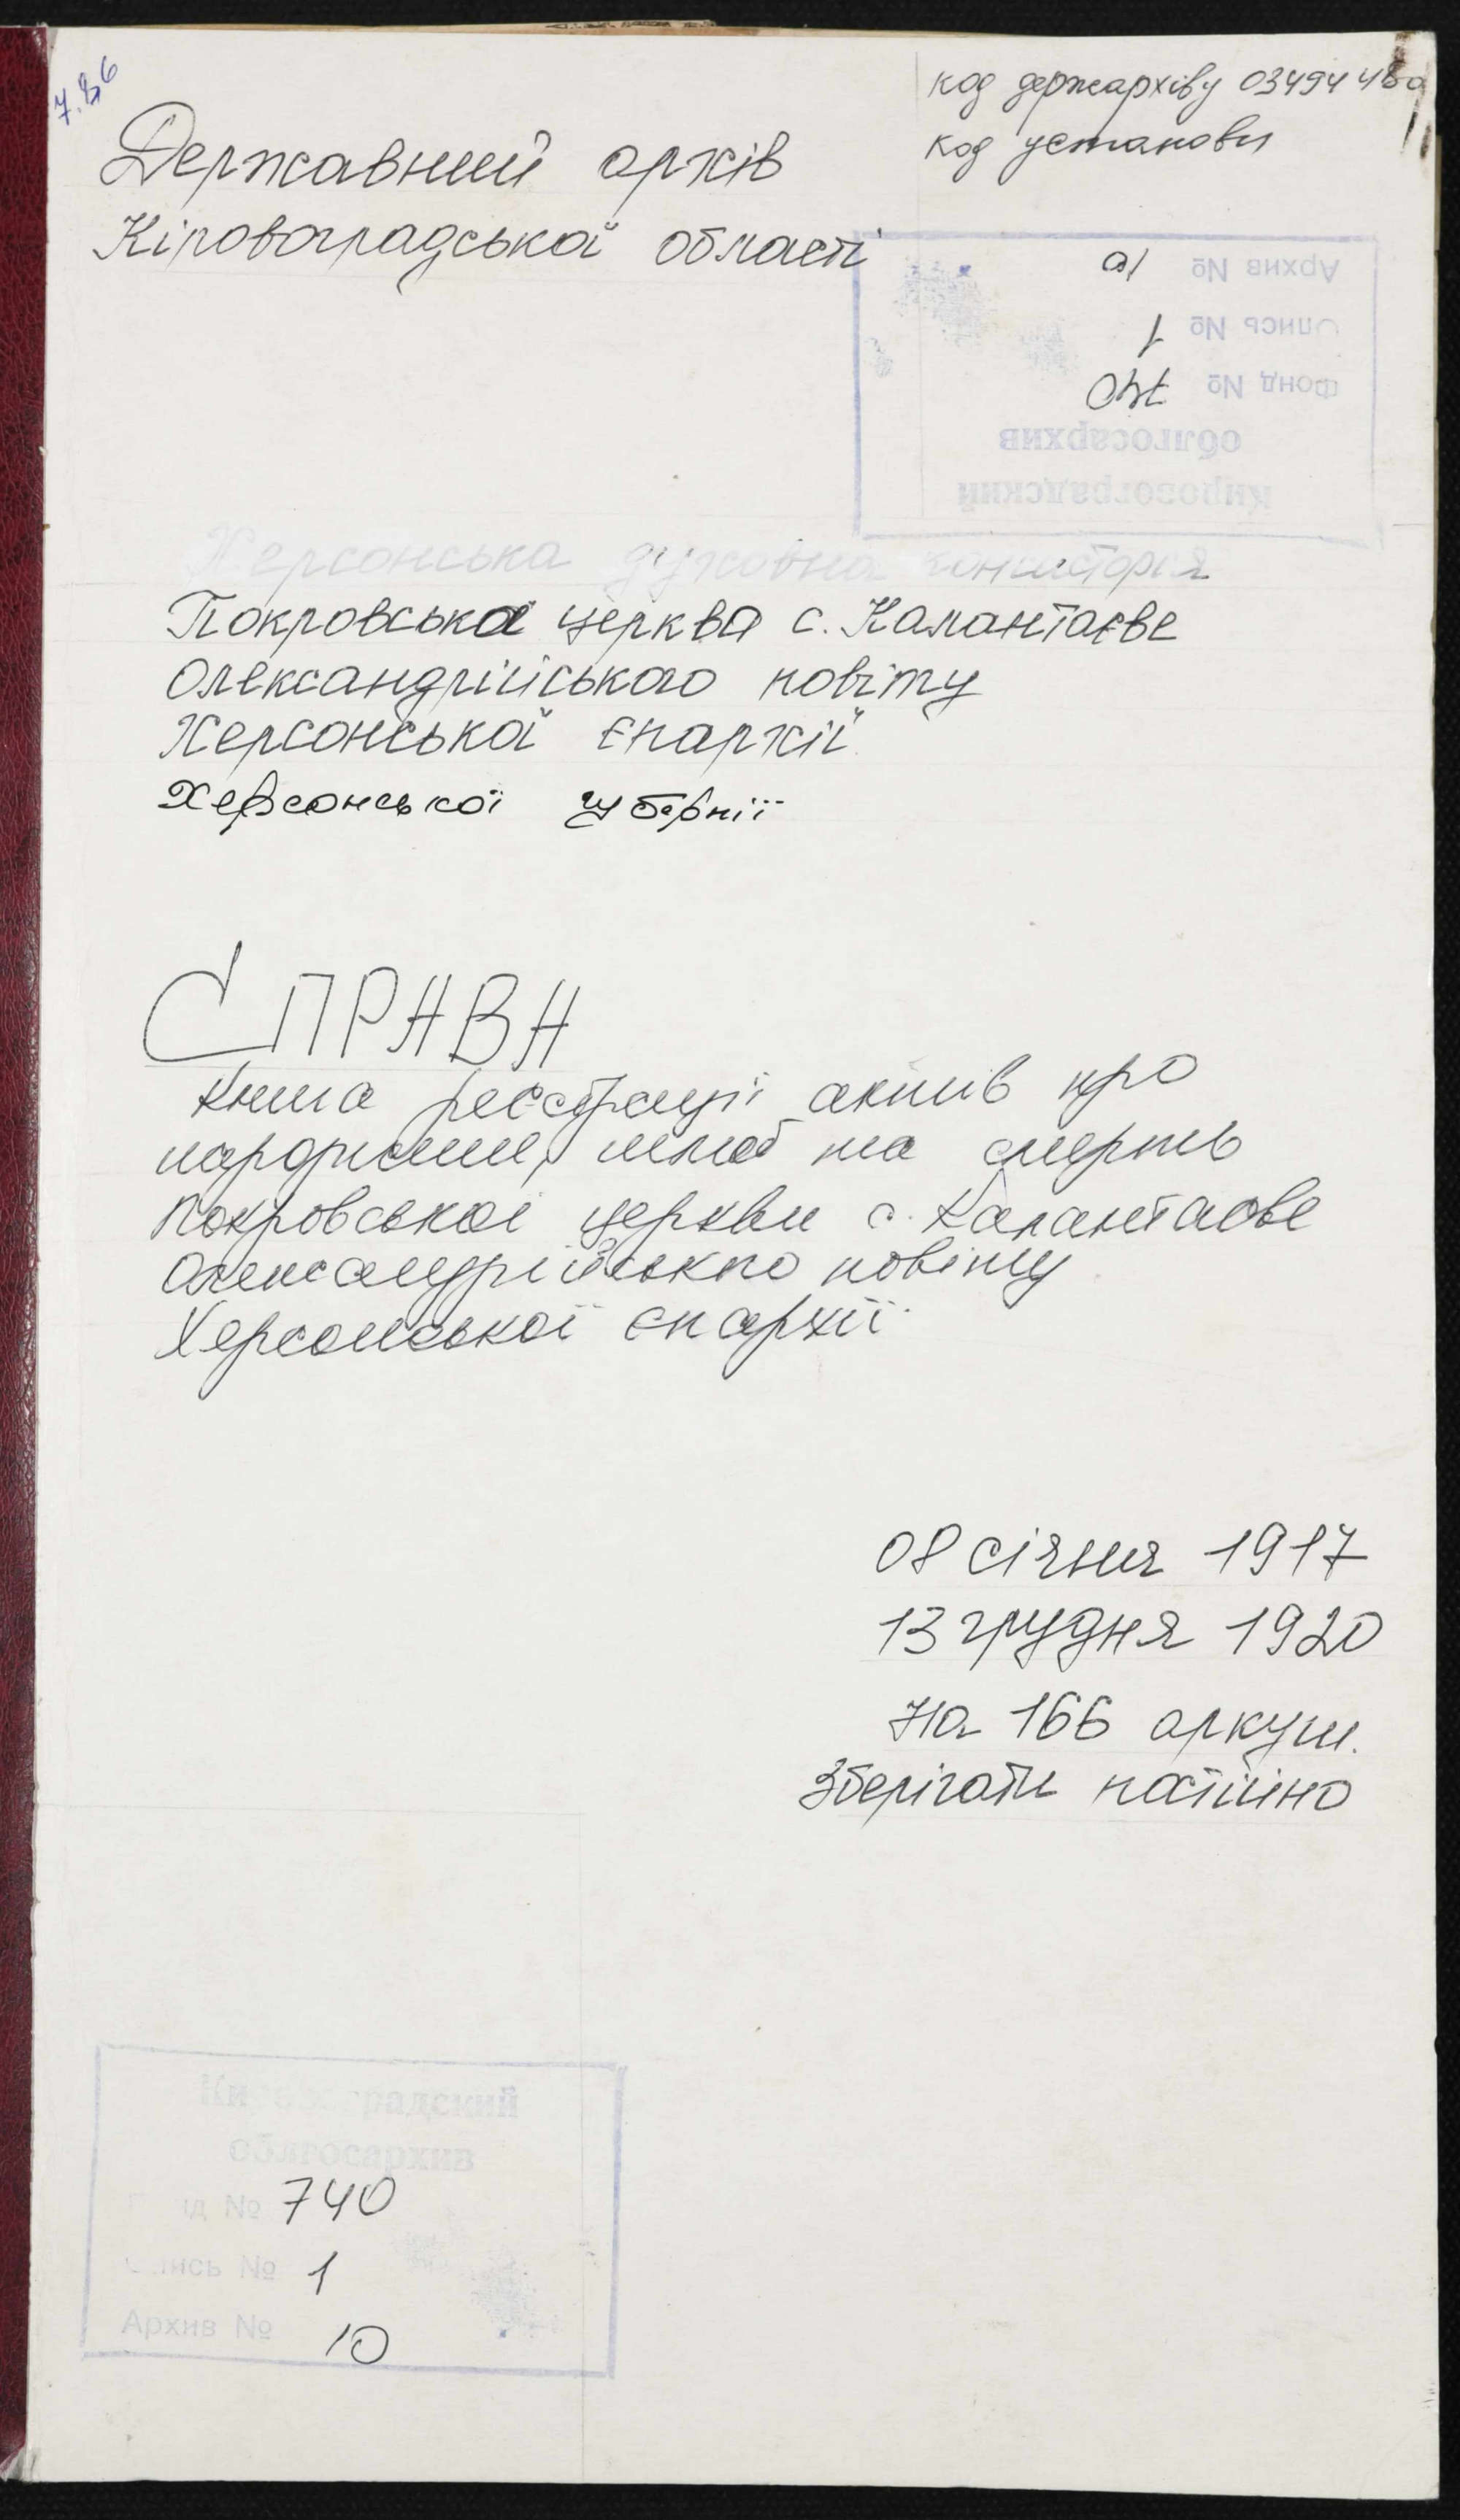 код держархіву 03494480
код установи
Державний архів
Кіровоградської області
Архив № 10
Опись № 1
Фонд № 740
облгосархив
Кировоградский
Херсонська духовна консисторія
Покровська церква с. Калантаєве
Олександрійського повіту
Херсонської єпархії
Херсонської губернії
СПРАВА
Книга реєстрації актів про
народження, шлюб та смерть
Покровської церкви с. Калантаєве
Олександрійського повіту
Херсонської єпархії
08 січня 1917
13 грудня 1920
На 166 аркуш.
Зберігати постійно
Кировоградский
облгосархив
Фонд № 740
Опись № 1
Архив № 10